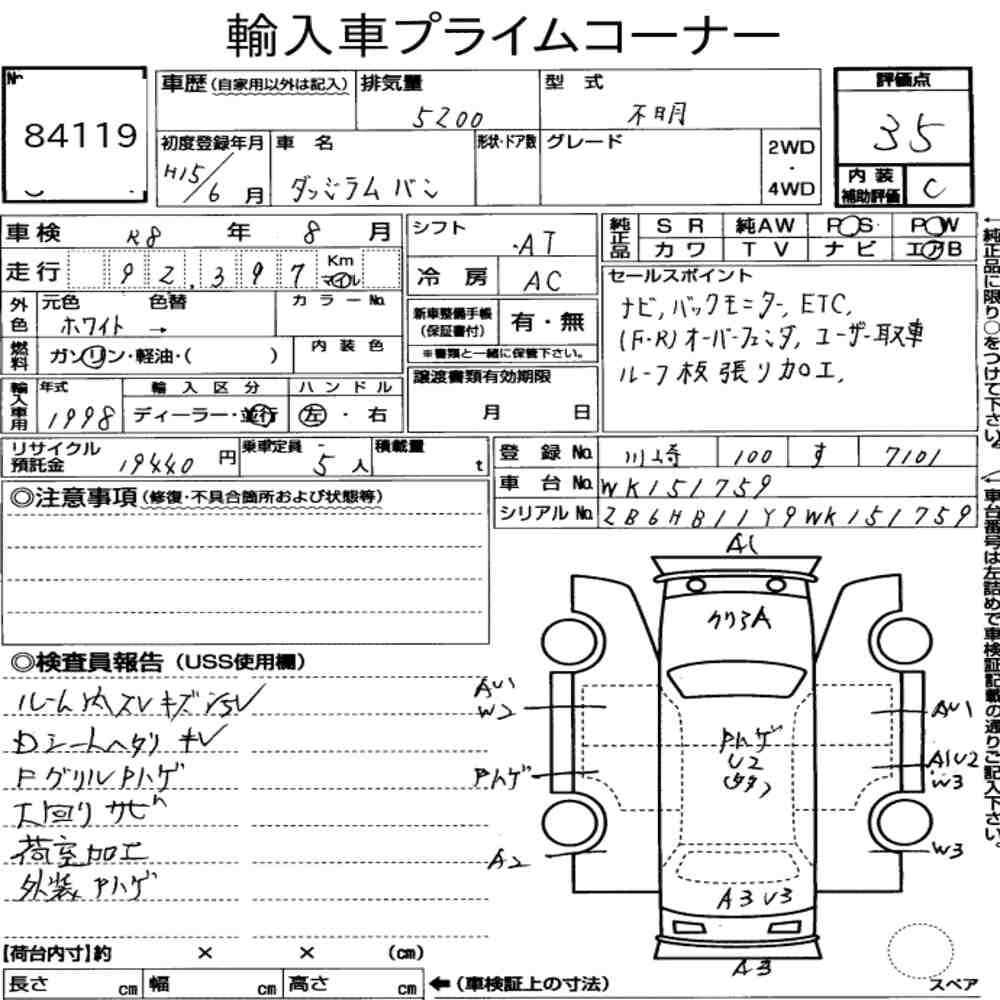 輸入車プライムコーナー
№ 84119
車歴(自家用以外は記入) 排気量 5200 型式 不明
初度登録年月 H15/6月 車名 ダッジラム バン 形状・ドア数 グレード 2WD・4WD
評価点 35
内装補助評価 C
車検 R8年8月
走行 92,397 Km マイル
外色 元色 ホワイト 色替 → カラーNo.
燃料 ガソリン・軽油・( ) 内装色
輸入車用 年式 1998 輸入区分 ディーラー・並行 ハンドル 左・右
シフト AT
冷房 AC
新車整備手帳(保証書付) 有・無
※書類と一緒に保管下さい。
譲渡書類有効期限
月 日
純正品 SR 純AW PS PW
カワ TV ナビ エアB
セールスポイント
ナビ,バックモニター,ETC,
(F・R)オーバーフェンダ,ユーザー買取車
ルーフ板張り加工,
←純正品に限り○をつけて下さい。
リサイクル預託金 19440円 乗車定員 5人 積載量 t
登録No. 川崎 100 す 7101
車台No. WK151759
シリアルNo. 2B6HB11Y9WK151759
←車台番号は左詰めで車検証記載の通りご記入下さい。
◎注意事項(修復・不具合箇所および状態等)
◎検査員報告(USS使用欄)
ルーム内スレ キズ ヨゴレ
Dシートヘタリ キレ
FグリルPハゲ
下回りサビ
荷室加工
外装Pハゲ
A1
クリアA
AU1
W2
Pハゲ
A2
Pハゲ
U2
AU1
A1U2
W3
W3
A3 U3
A3
スペア
【荷台内寸】約 × × (cm)
長さ cm 幅 cm 高さ cm ←(車検証上の寸法)